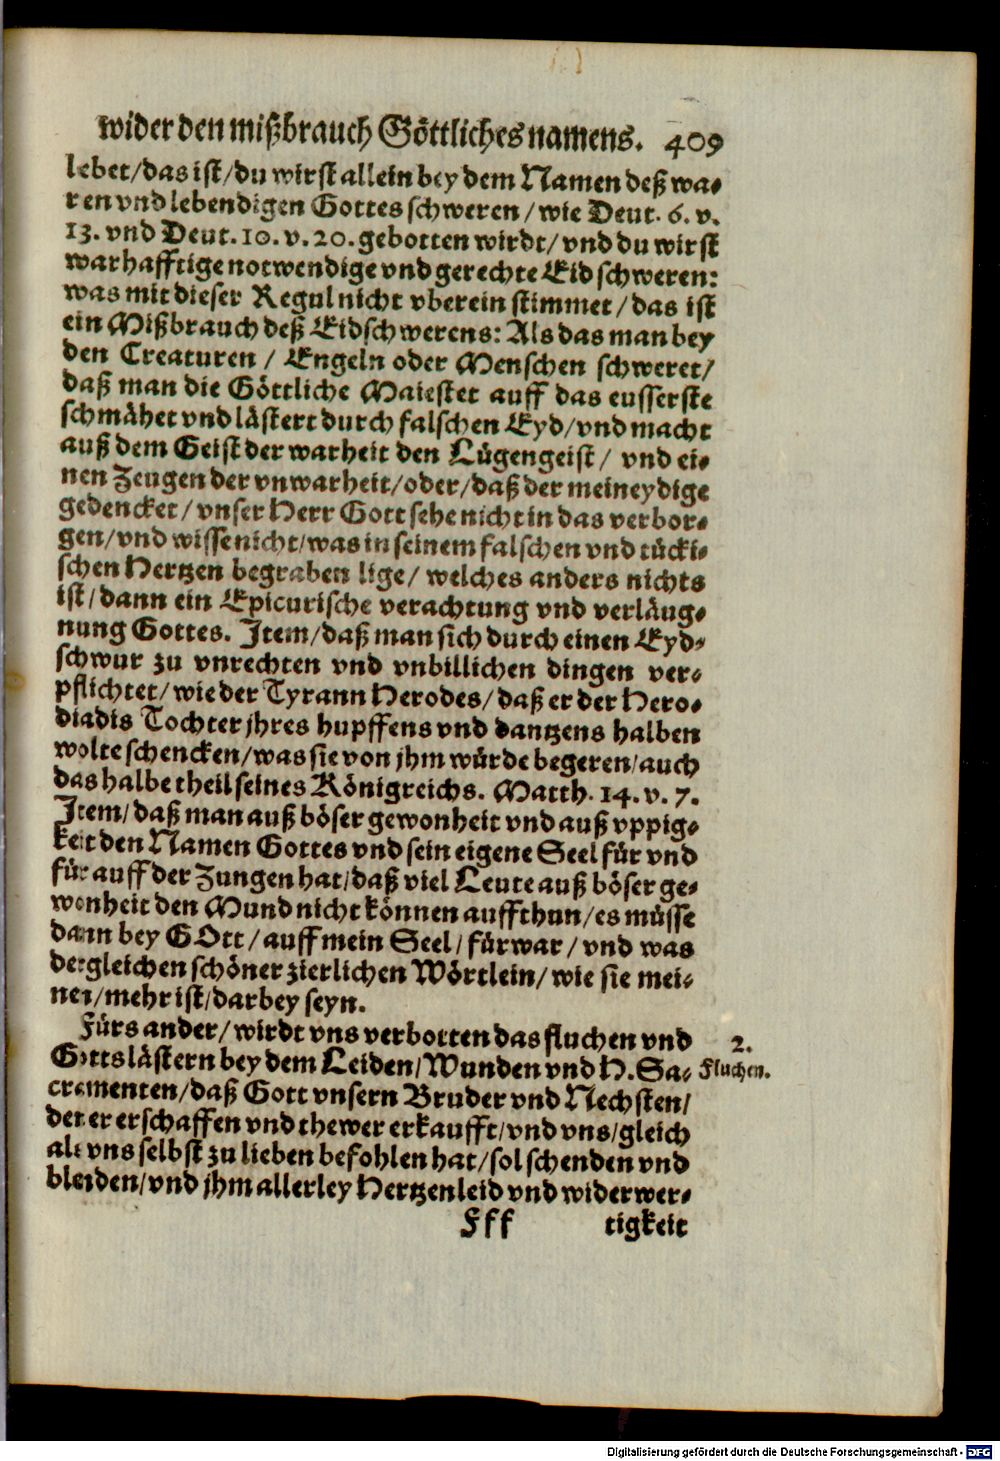 wider den mißbrauch Göttliches namens. 409
lebet/das ist/du wirst allein bey dem Namen deß wa-
ren vnd lebendigen Gottes schweren/wie Deut. 6. v.
13. vnd Deut. 10. v. 20. gebotten wirdt/vnd du wirst
warhafftige notwendige vnd gerechte Eid schweren:
was mit dieser Regul nicht vberein stimmet/das ist
ein Mißbrauch deß Eidschwerens: Als das man bey
den Creaturen / Engeln oder Menschen schweret/
daß man die Göttliche Maiestet auff das eusserste
schmähet vnd lästert durch falschen Eyd/vnd macht
auß dem Geist der warheit den Lügengeist/ vnd ei-
nen Zeugen der vnwarheit/oder/daß der meineydige
gedencket/vnser Herr Gott sehe nicht in das verbor-
gen/vnd wisse nicht/was in seinem falschen vnd tücki-
schen Hertzen begraben lige/ welches anders nichts
ist/dann ein Epicurische verachtung vnd verläug-
nung Gottes. Item/daß man sich durch einen Eyd-
schwur zu vnrechten vnd vnbillichen dingen ver-
pflichtet/wie der Tyrann Herodes/daß er der Hero-
diadis Tochter jhres hupffens vnd dantzens halben
wolte schencken/was sie von jhm würde begeren/auch
das halbe theil seines Königreichs. Matth. 14. v. 7.
Item/daß man auß böser gewonheit vnd auß vppig-
keit den Namen Gottes vnd sein eigene Seel für vnd
für auff der Zungen hat/daß viel Leute auß böser ge-
wonheit den Mund nicht können auffthun/es müsse
dann bey GOtt/auff mein Seel/fürwar/vnd was
dergleichen schöner zierlichen Wörtlein/wie sie mei-
nen/mehr ist/darbey seyn.
Fürs ander/wirdt vns verbotten das fluchen vnd 2.
Gottslästern bey dem Leiden/Wunden vnd H. Sa- Fluchen.
cramenten/daß Gott vnsern Bruder vnd Nechsten/
den er erschaffen vnd thewer erkaufft/vnd vns/gleich
als vns selbst zu lieben befohlen hat/sol schenden vnd
blenden/vnd jhm allerley Hertzenleid vnd widerwer-
Fff tigkeit
Digitalisierung gefördert durch die Deutsche Forschungsgemeinschaft - DFG